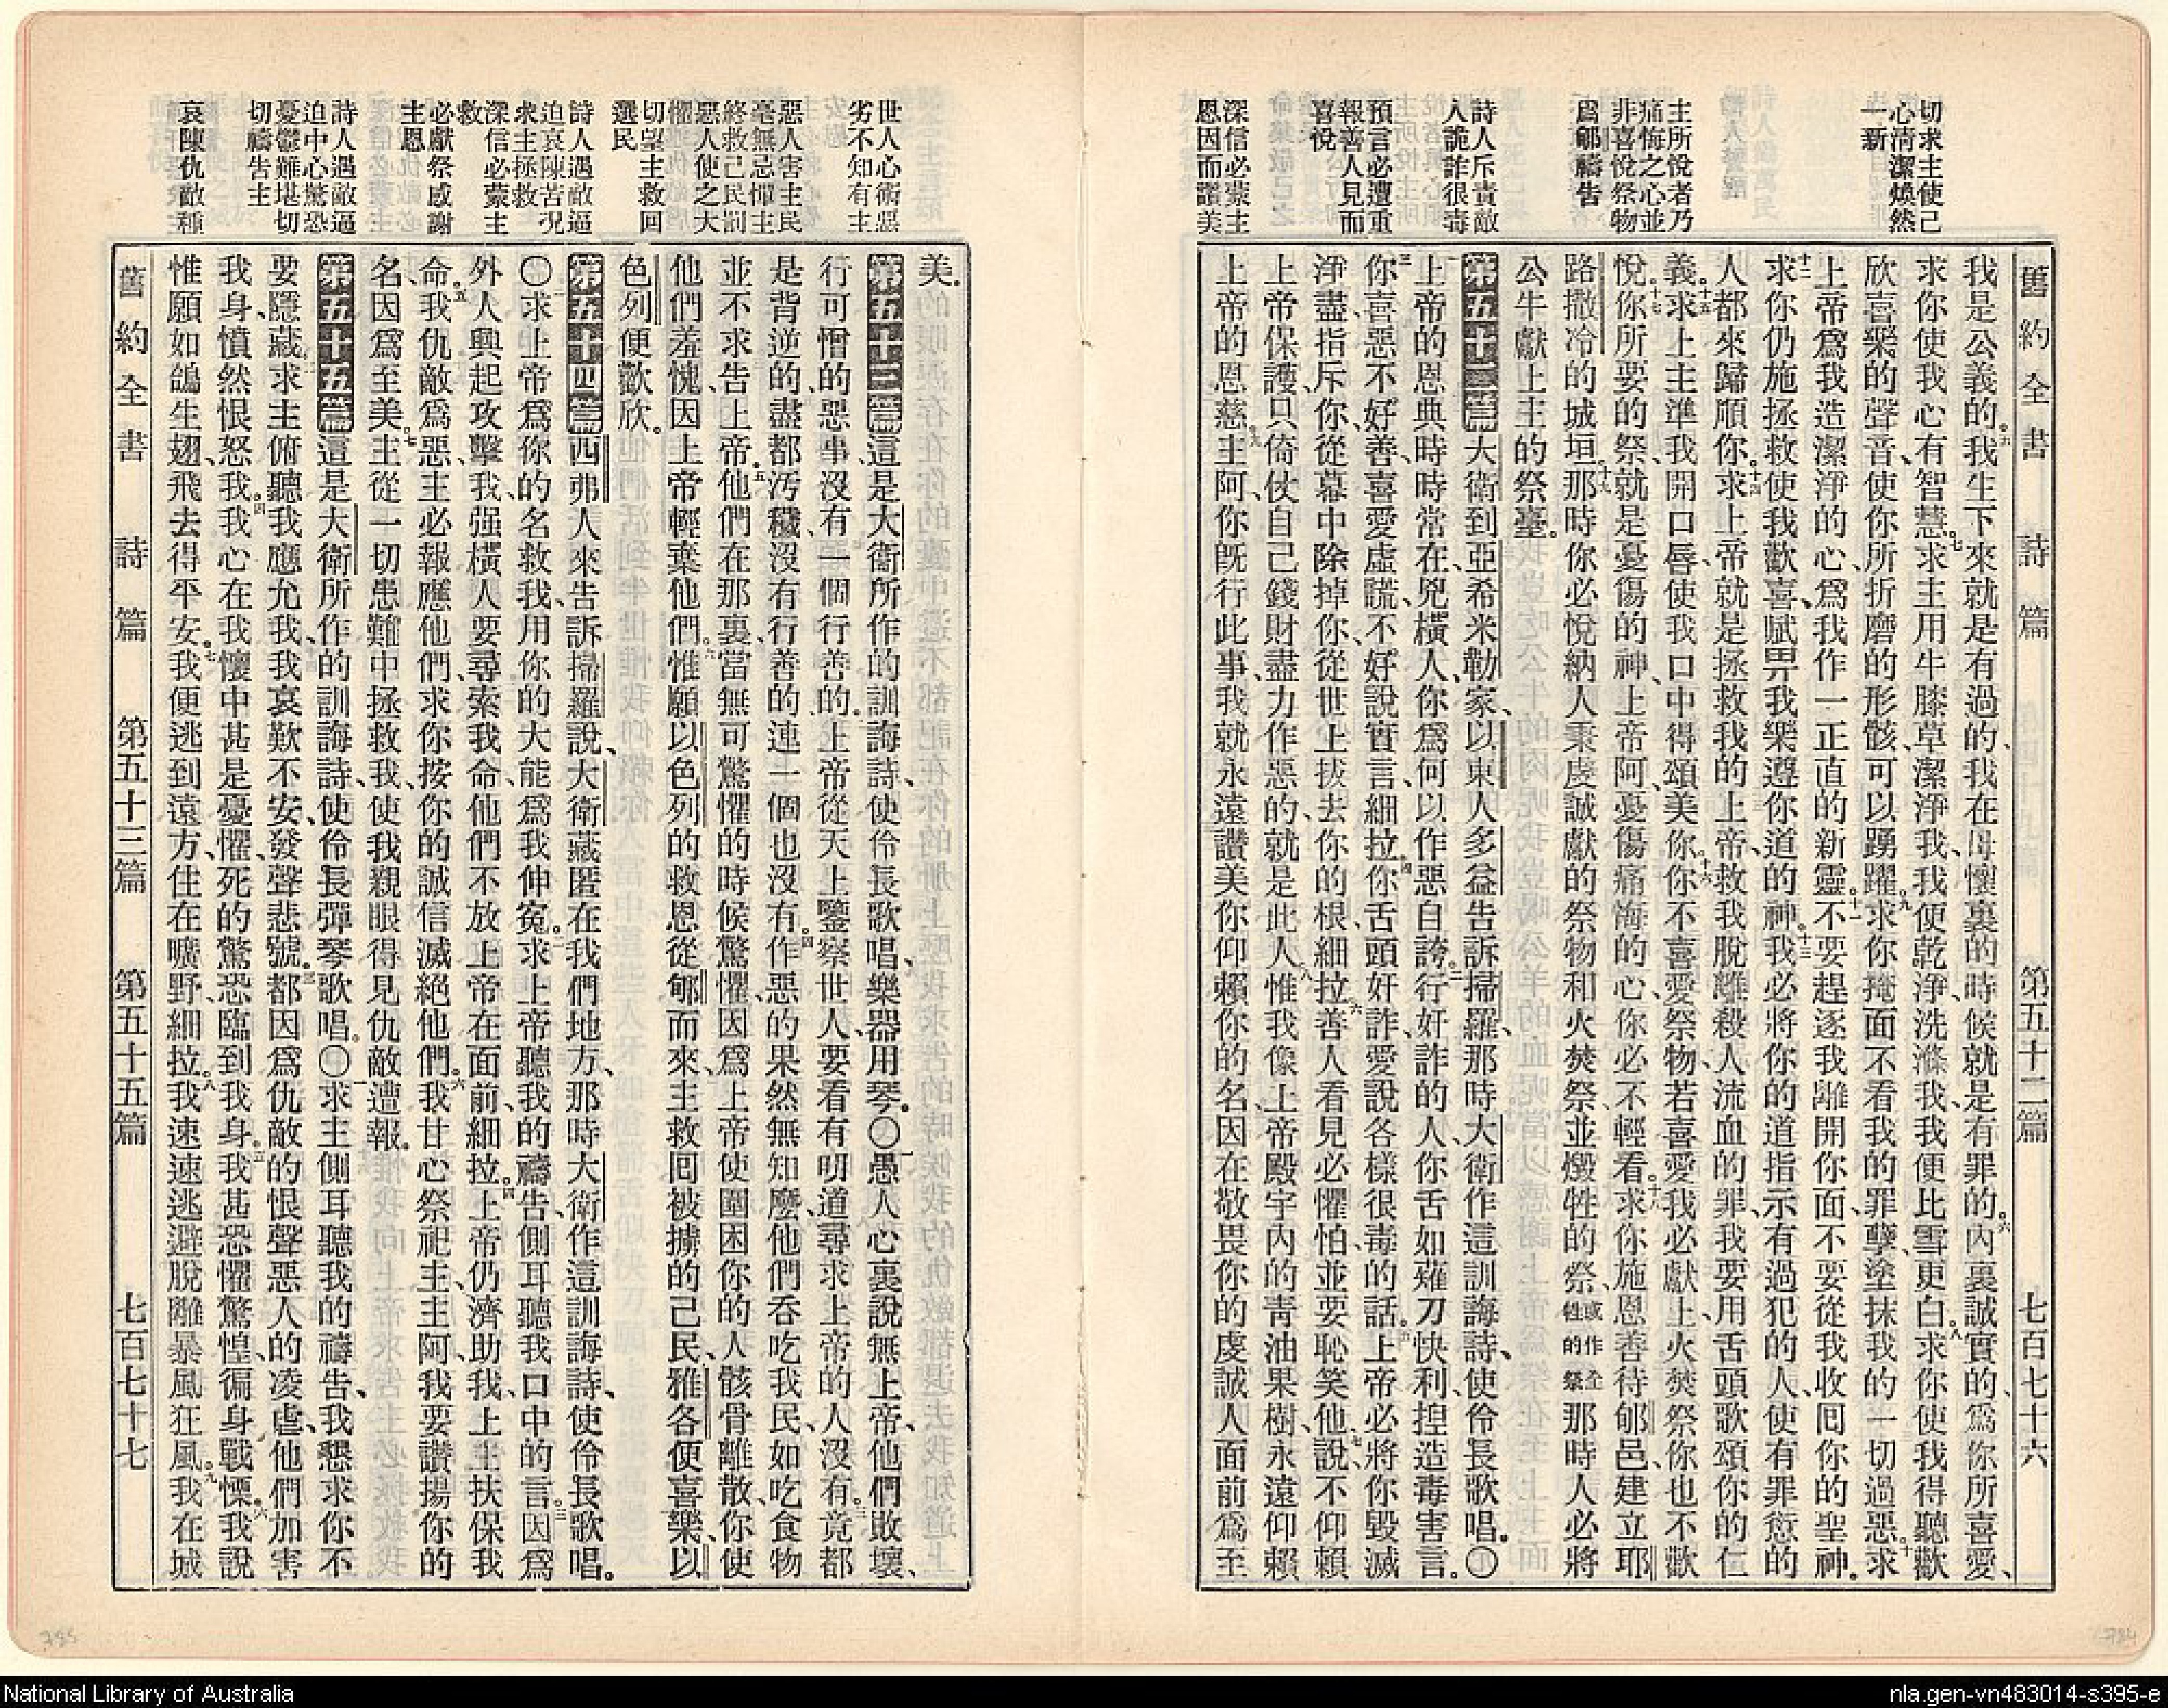 切求主使己
心淸潔煥然
一新
主所悅者乃
痛悔之心並
非喜悅祭物
爲郇禱吿
詩人斥責敵
人詭詐很毒
預言必遭重
報善人見而
喜悅
深信必蒙主
恩因而讚美
舊約全書 詩篇 第五十二篇 七百七十六
我是公義的。我生下來就是有過的、我在母懷裏的時候就是有罪的。內裏誠實的、爲你所喜愛、
求你使我心有智慧。求主用牛膝草潔淨我、我便乾淨、洗滌我、我便比雪更白。求你使我得聽歡
欣喜樂的聲音、使你所折磨的形骸、可以踴躍。求你掩面不看我的罪孽、塗抹我的一切過惡。求
上帝爲我造潔淨的心、爲我作一正直的新靈。不要趕逐我離開你面、不要從我收囘你的聖神。
求你仍施拯救使我歡喜、賦畀我樂遵你道的神。我必將你的道指示有過犯的人、使有罪愆的
人都來歸順你。求上帝就是拯救我的上帝、救我脫離殺人流血的罪、我要用舌頭歌頌你的仁
義。求上主準我開口唇、使我口中得頌美你。你不喜愛祭物、若喜愛我必獻上、火焚祭你也不歡
悅。你所要的祭、就是憂傷的神、上帝阿、憂傷痛悔的心、你必不輕看。求你施恩善待郇邑、建立耶
路撒冷的城垣。那時你必悅納人秉虔誠獻的祭物、和火焚祭、並燬牲的祭、或作全牲的祭那時人必將
公牛獻上主的祭臺。
第五十二篇大衛到亞希米勒家、以東人多益吿訴掃羅、那時大衛作這訓誨詩、使伶長歌唱。〇
上帝的恩典時時常在、兇橫人、你爲何以作惡自誇。行奸詐的人、你舌如薙刀快利、揑造毒害言。
你喜惡不好善、喜愛虛謊、不好說實言、細拉。你舌頭奸詐、愛說各樣很毒的話。上帝必將你毀滅
淨盡、指斥你、從幕中除掉你、從世上拔去你的根、細拉。善人看見必懼怕、並要恥笑他、說、不仰賴
上帝保護、只倚仗自己錢財盡力作惡的、就是此人、惟我像上帝殿宇內的靑油果樹、永遠仰賴
上帝的恩慈。主阿、你旣行此事、我就永遠讚美你、仰賴你的名、因在敬畏你的虔誠人面前爲至
世人心術惡
劣不知有主
惡人害主民
毫無忌憚主
終救己民罰
惡人使之大
懼
切望主救囘
選民
詩人遇敵逼
迫哀陳苦況
求主拯救
深信必蒙主
救
必獻祭感謝
主恩
詩人遇敵逼
迫中心驚恐
憂鬱難堪切
切禱吿主
哀陳仇敵種
美。
第五十三篇這是大衛所作的訓誨詩、使伶長歌唱、樂器用琴。〇愚人心裏說無上帝、他們敗壞、
行可憎的惡事、沒有一個行善的。上帝從天上鑒察世人、要看有明道尋求上帝的人沒有。竟都
是背逆的、盡都汚穢、沒有行善的、連一個也沒有。作惡的果然無知麽、他們吞吃我民、如吃食物
並不求吿上帝。他們在那裏、當無可驚懼的時候驚懼、因爲上帝使圍困你的人骸骨離散、你使
他們羞愧、因上帝輕棄他們。惟願以色列的救恩從郇而來、主救囘被擄的己民、雅各便喜樂、以
色列便歡欣。
第五十四篇西弗人來吿訴掃羅說、大衛藏匿在我們地方、那時大衛作這訓誨詩、使伶長歌唱。
〇求上帝爲你的名救我、用你的大能爲我伸寃。求上帝聽我的禱吿、側耳聽我口中的言。因爲
外人興起攻擊我、强橫人要尋索我命、他們不放上帝在面前、細拉。上帝仍濟助我、上主扶保我
命。我仇敵爲惡、主必報應他們、求你按你的誠信滅絕他們。我甘心祭祀主、主阿、我要讚揚你的
名、因爲至美。主從一切患難中拯救我、使我親眼得見仇敵遭報。
第五十五篇這是大衛所作的訓誨詩、使伶長彈琴歌唱。〇求主側耳聽我的禱吿、我懇求你不
要隱藏。求主俯聽我、應允我、我哀歎不安、發聲悲號。都因爲仇敵的恨聲、惡人的凌虐、他們加害
我身、憤然恨怒我。我心在我懷中甚是憂懼、死的驚恐臨到我身。我甚恐懼驚惶、徧身戰慄。我說
惟願如鴿生翅、飛去得平安。我便逃到遠方、住在曠野、細拉。我速速逃避、脫離暴風狂風。我在城
舊約全書 詩篇 第五十三篇 第五十五篇 七百七十七
785
784
National Library of Australia
nla.gen-vn483014-s395-e